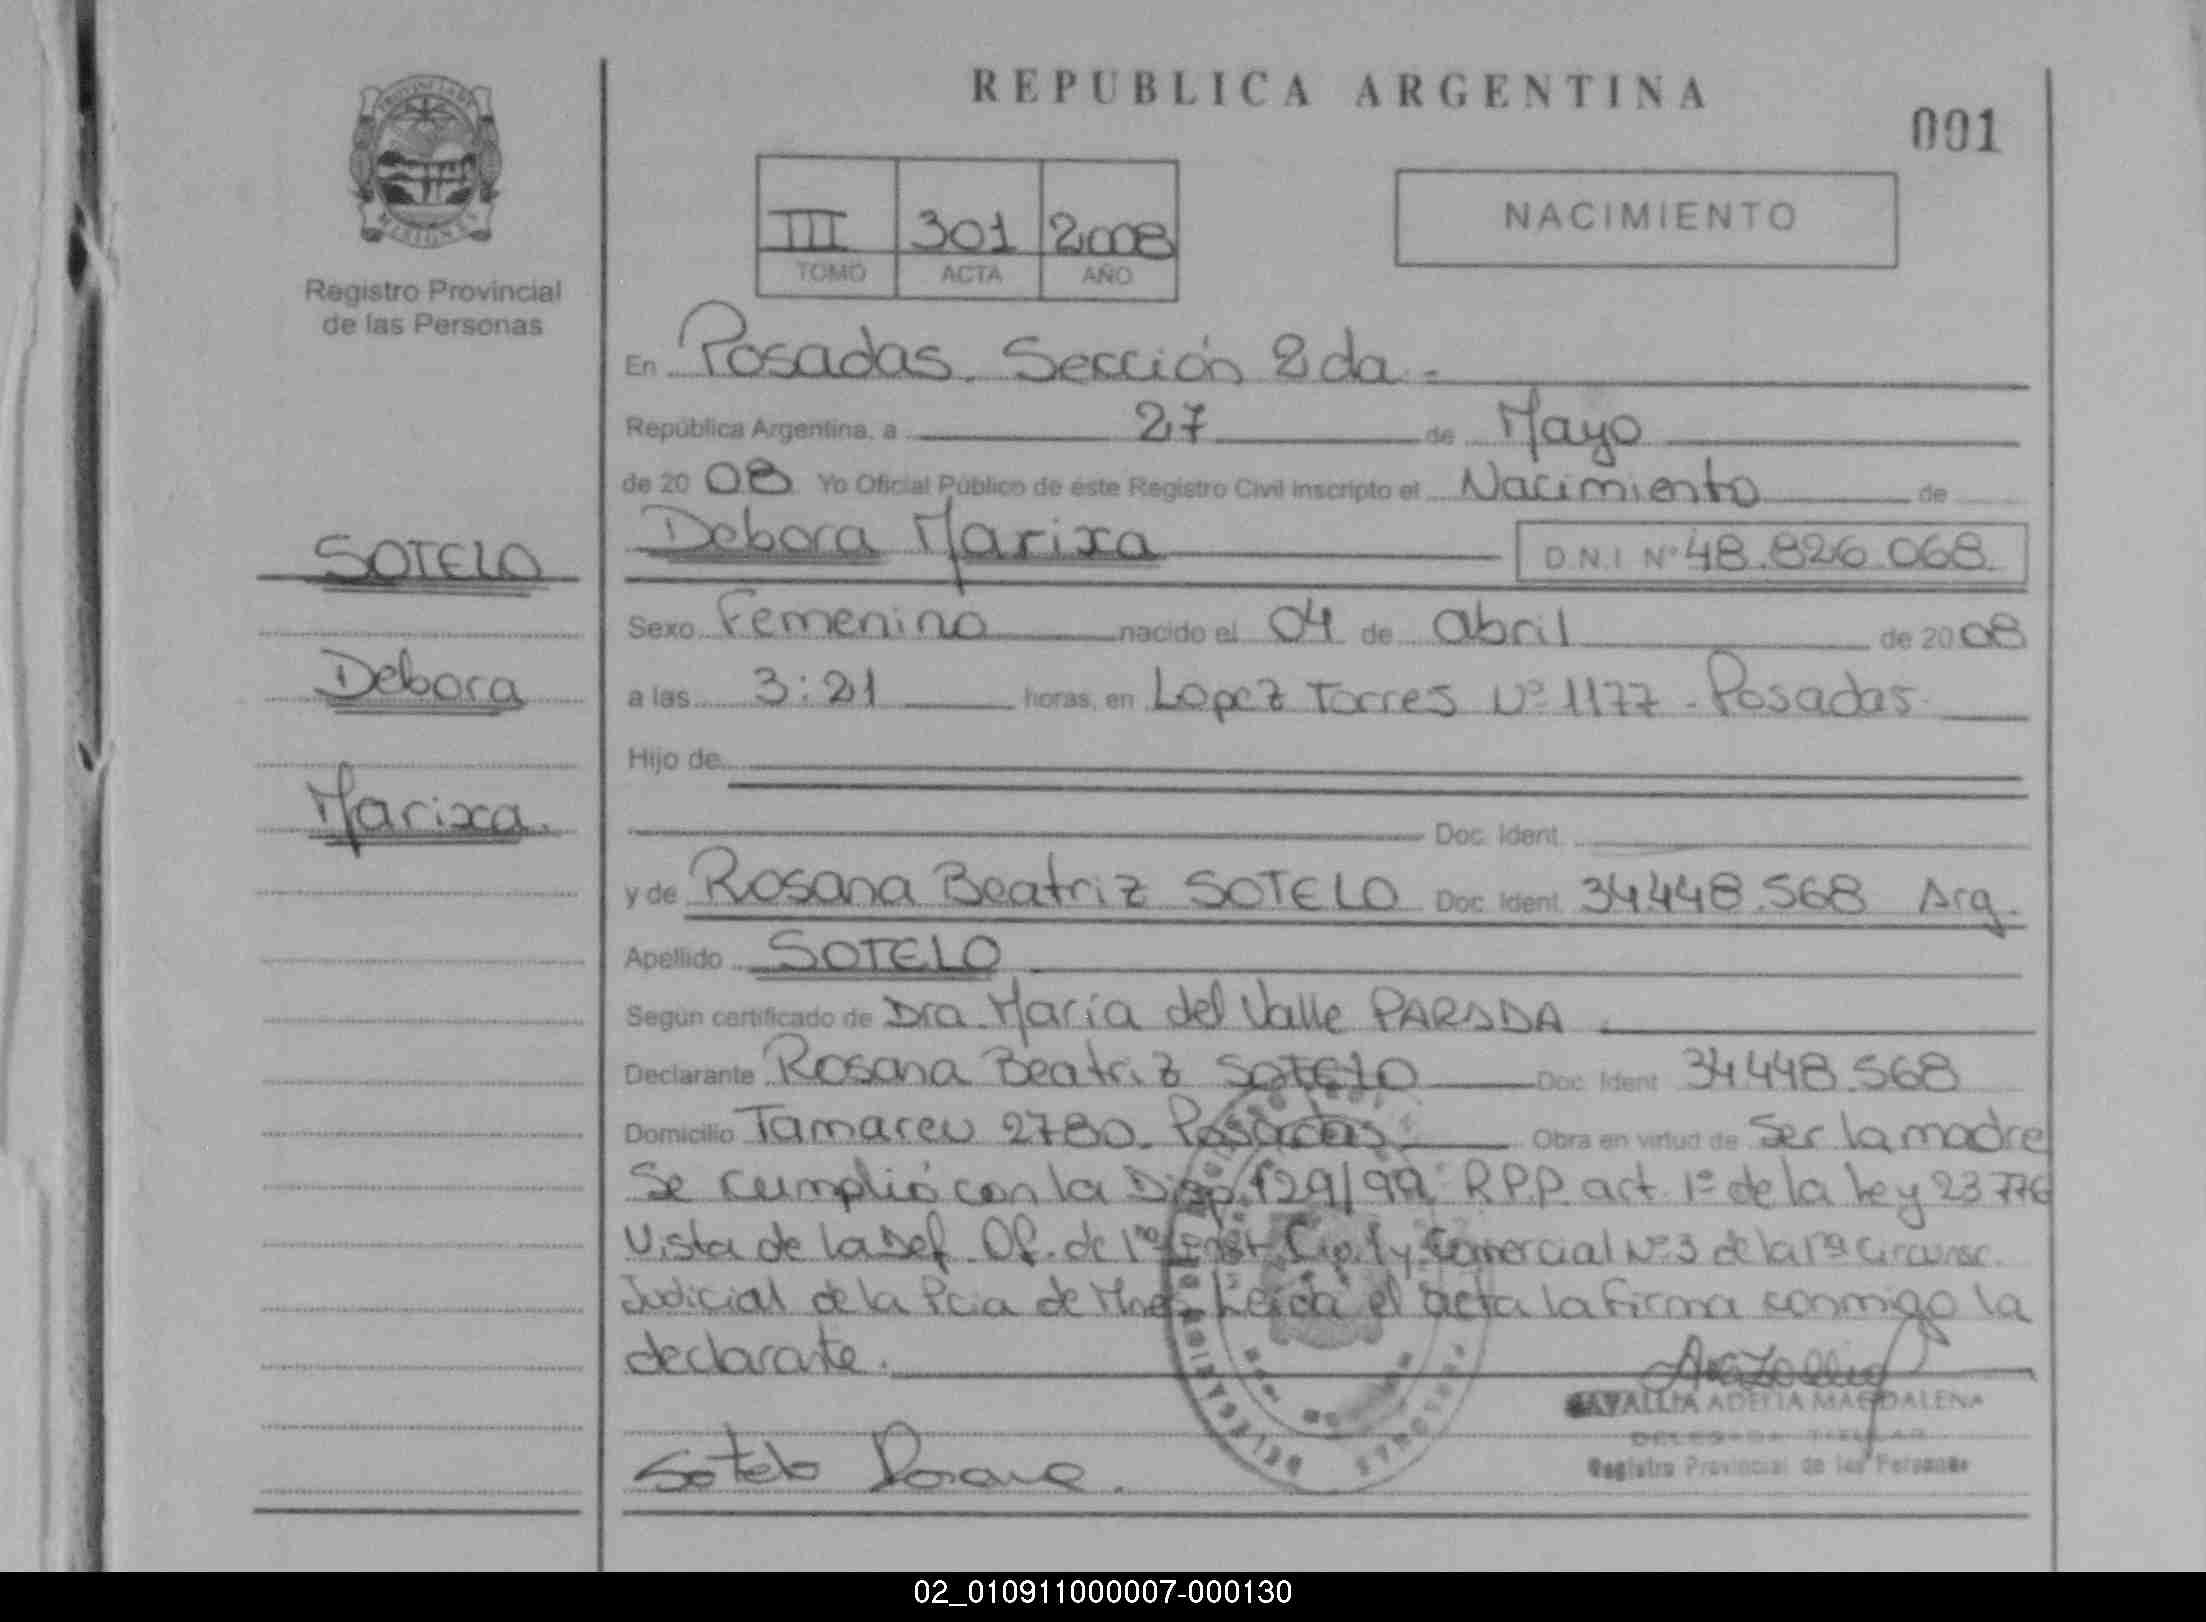 REPUBLICA ARGENTINA
001
III 301 2008
TOMO ACTA AÑO
NACIMIENTO
PROVINCIA DE MISIONES
Registro Provincial
de las Personas
SOTELO
Debora
Marixa.
En Posadas. Sección 2da.-
República Argentina, a 27 de Mayo
de 2008 Yo Oficial Público de éste Registro Civil inscripto el Nacimiento de
Debora Marixa D.N.I Nº 48.826.068
Sexo Femenino nacido el 04 de abril de 2008
a las 3:21 horas, en Lopez Torres Nº 1177 - Posadas.
Hijo de
Doc. Ident.
y de Rosana Beatriz SOTELO Doc. Ident. 34.448.568 Arg.
Apellido SOTELO
Según certificado de Dra. María del Valle PARADA
Declarante Rosana Beatriz SOTELO Doc. Ident. 34.448.568
Domicilio Tamareu 2780. Posadas Obra en virtud de Ser la madre
Se cumplió con la Disp. 129/99 R.P.P. art. 1º de la Ley 23.776
Vista de la Def. Of. de 1ra Inst. Civil y Comercial Nº 3 de la 1ª Circunsc.
Judicial de la Pcia de Mnes. Leída el acta la firma conmigo la
declarante.
Sotelo Rosana.
CAVALLIA ADELIA MAGDALENA
DELEGADA TITULAR
Registro Provincial de las Personas
02_010911000007-000130